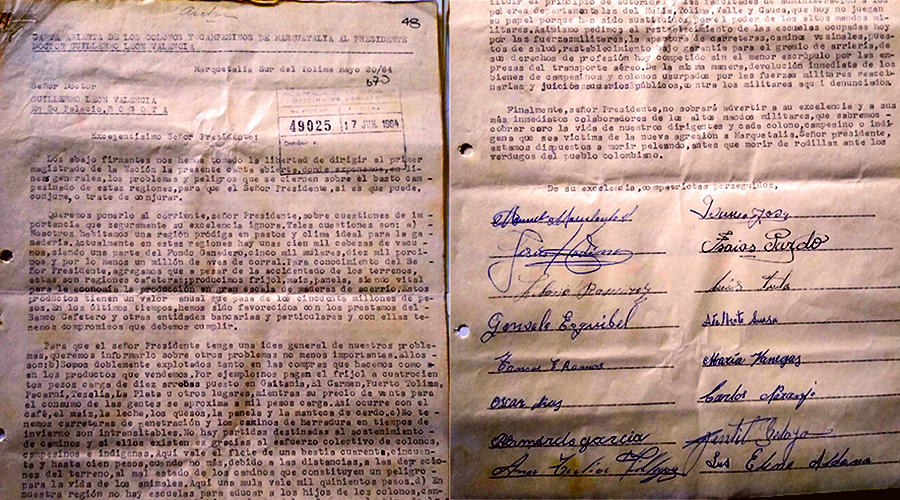 48
CARTA ABIERTA DE LOS COLONOS Y CAMPESINOS DE MARQUETALIA AL PRESIDENTE
DOCTOR GUILLERMO LEON VALENCIA
Marquetalia Sur del Tolima Mayo 20/64
Señor Doctor
GUILLERMO LEON VALENCIA
En Su Palacio, B O G O T A
49025 17 JUN. 1964
Excelentísimo Señor Presidente:
Los abajo firmantes nos hemos tomado la libertad de dirigir al primer
magistrado de la Nación la presente carta abierta, donde exponemos, en lí-
neas generales, los problemas y peligros que se ciernen sobre el basto cam-
pesinado de estas regiones, para que el Señor Presidente, si es que puede,
conjure, o trate de conjurar.
Queremos ponerlo al corriente, señor Presidente, sobre cuestiones de im-
portancia que seguramente su excelencia ignora. Tales cuestiones son: a) -
Nosotros habitamos una región pródiga en pastos y clima ideal para la ga-
nadería. Actualmente en estas regiones hay unas cien mil cabezas de vacu-
nos, siendo una parte del Fondo Ganadero, cinco mil mulares, diez mil porci-
nos y por lo menos un millón de aves de corral. Para conocimiento del Se-
ñor Presidente, agregamos que a pesar de lo accidentado de los terrenos,
estas son regiones cafeteras; productos frijol, maíz, panela, siendo vital
para la economía la producción en gran escala de maderas de aserrío. Estos
productos tienen un valor anual que pasa de los cincuenta millones de pe-
sos. En los últimos tiempos, hemos sido favorecidos con los prestamos del-
Banco Cafetero y otras entidades bancarias y particulares y con ellas te-
nemos compromisos que debemos cumplir.
Para que el señor Presidente tenga una idea general de nuestros proble-
mas, queremos informarlo sobre otros problemas no menos importantes. Ellos
son: b) Somos doblemente explotados tanto en las compras que hacemos como
en los productos que vendemos. Por ejemplo: nos pagan el frijol a cuatrocien
tos pesos carga de diez arrobas puesto en Gaitania, El Carmen, Puerto Tolima,
Pacarní, Tesalia, La Plata u otros lugares, mientras su precio de venta para
el consumo de las gentes se aproxima a mil pesos carga. Así ocurre con el
café, el maíz, la leche, los quesos, la panela y la manteca de cerdo. c) No te-
nemos carreteras de penetración y los caminos de herradura en tiempos de
invierno son intransitables. No hay partidas destinadas al sostenimiento -
de caminos y si ellos existen es gracias al esfuerzo colectivo de colonos,
campesinos e indígenas. Aquí vale el flete de una bestia cuarenta, cincuen-
ta y hasta cien pesos, cuando no más, debido a las distancias, a las depreciones
del terreno, al mal estado de los caminos que constituyen un peligro
para la vida de los animales. Aquí una mula vale mil quinientos pesos. d) En
nuestra región no hay escuelas para educar a los hijos de los colonos, cam-
poderes departamentales del Huila, Tolima, Valle y Cauca, que hoy no juegan
su papel porque han sido sustituídos, por el poder de los altos mandos mi-
litares. Asimismo pedimos el restablecimiento de las escuelas ocupadas hoy
por las fuerzas militares, la apertura de carreteras, caminos vecinales, pues-
tos de salud, restablecimiento de garantía para el gremio de arriería, de
sus derechos de profesión hoy competido sin el menor escrúpulo por las em-
presas del transporte aéreo. De la misma manera, devolución inmediata de los
bienes de campesinos y colonos usurpados por las fuerzas militares reaccio-
narias y juicios sumarios públicos, contra los militares aquí denunciados.
Finalmente, señor Presidente, no sobrará advertir a su excelencia y a sus
más inmediatos colaboradores de los altos mandos militares, que sabremos -
cobrar caro la vida de nuestros dirigentes y cada colono, campesino o indí-
gena que sea víctima de la nueva agresión a Marquetalia. Señor presidente,
estamos dispuestos a morir peleando, antes que morir de rodillas ante los
verdugos del pueblo colombiano.
De su excelencia, compatriotas perseguidos,
Manuel Marulanda
Isaías Pardo
Jesús Medina
Ramírez
Luis
Gonzalo Esquibel
Ramos
María Vanegas
Oscar
Carlos Naranjo
Bernardo garcía
Gentil
Luz Elena Aldana